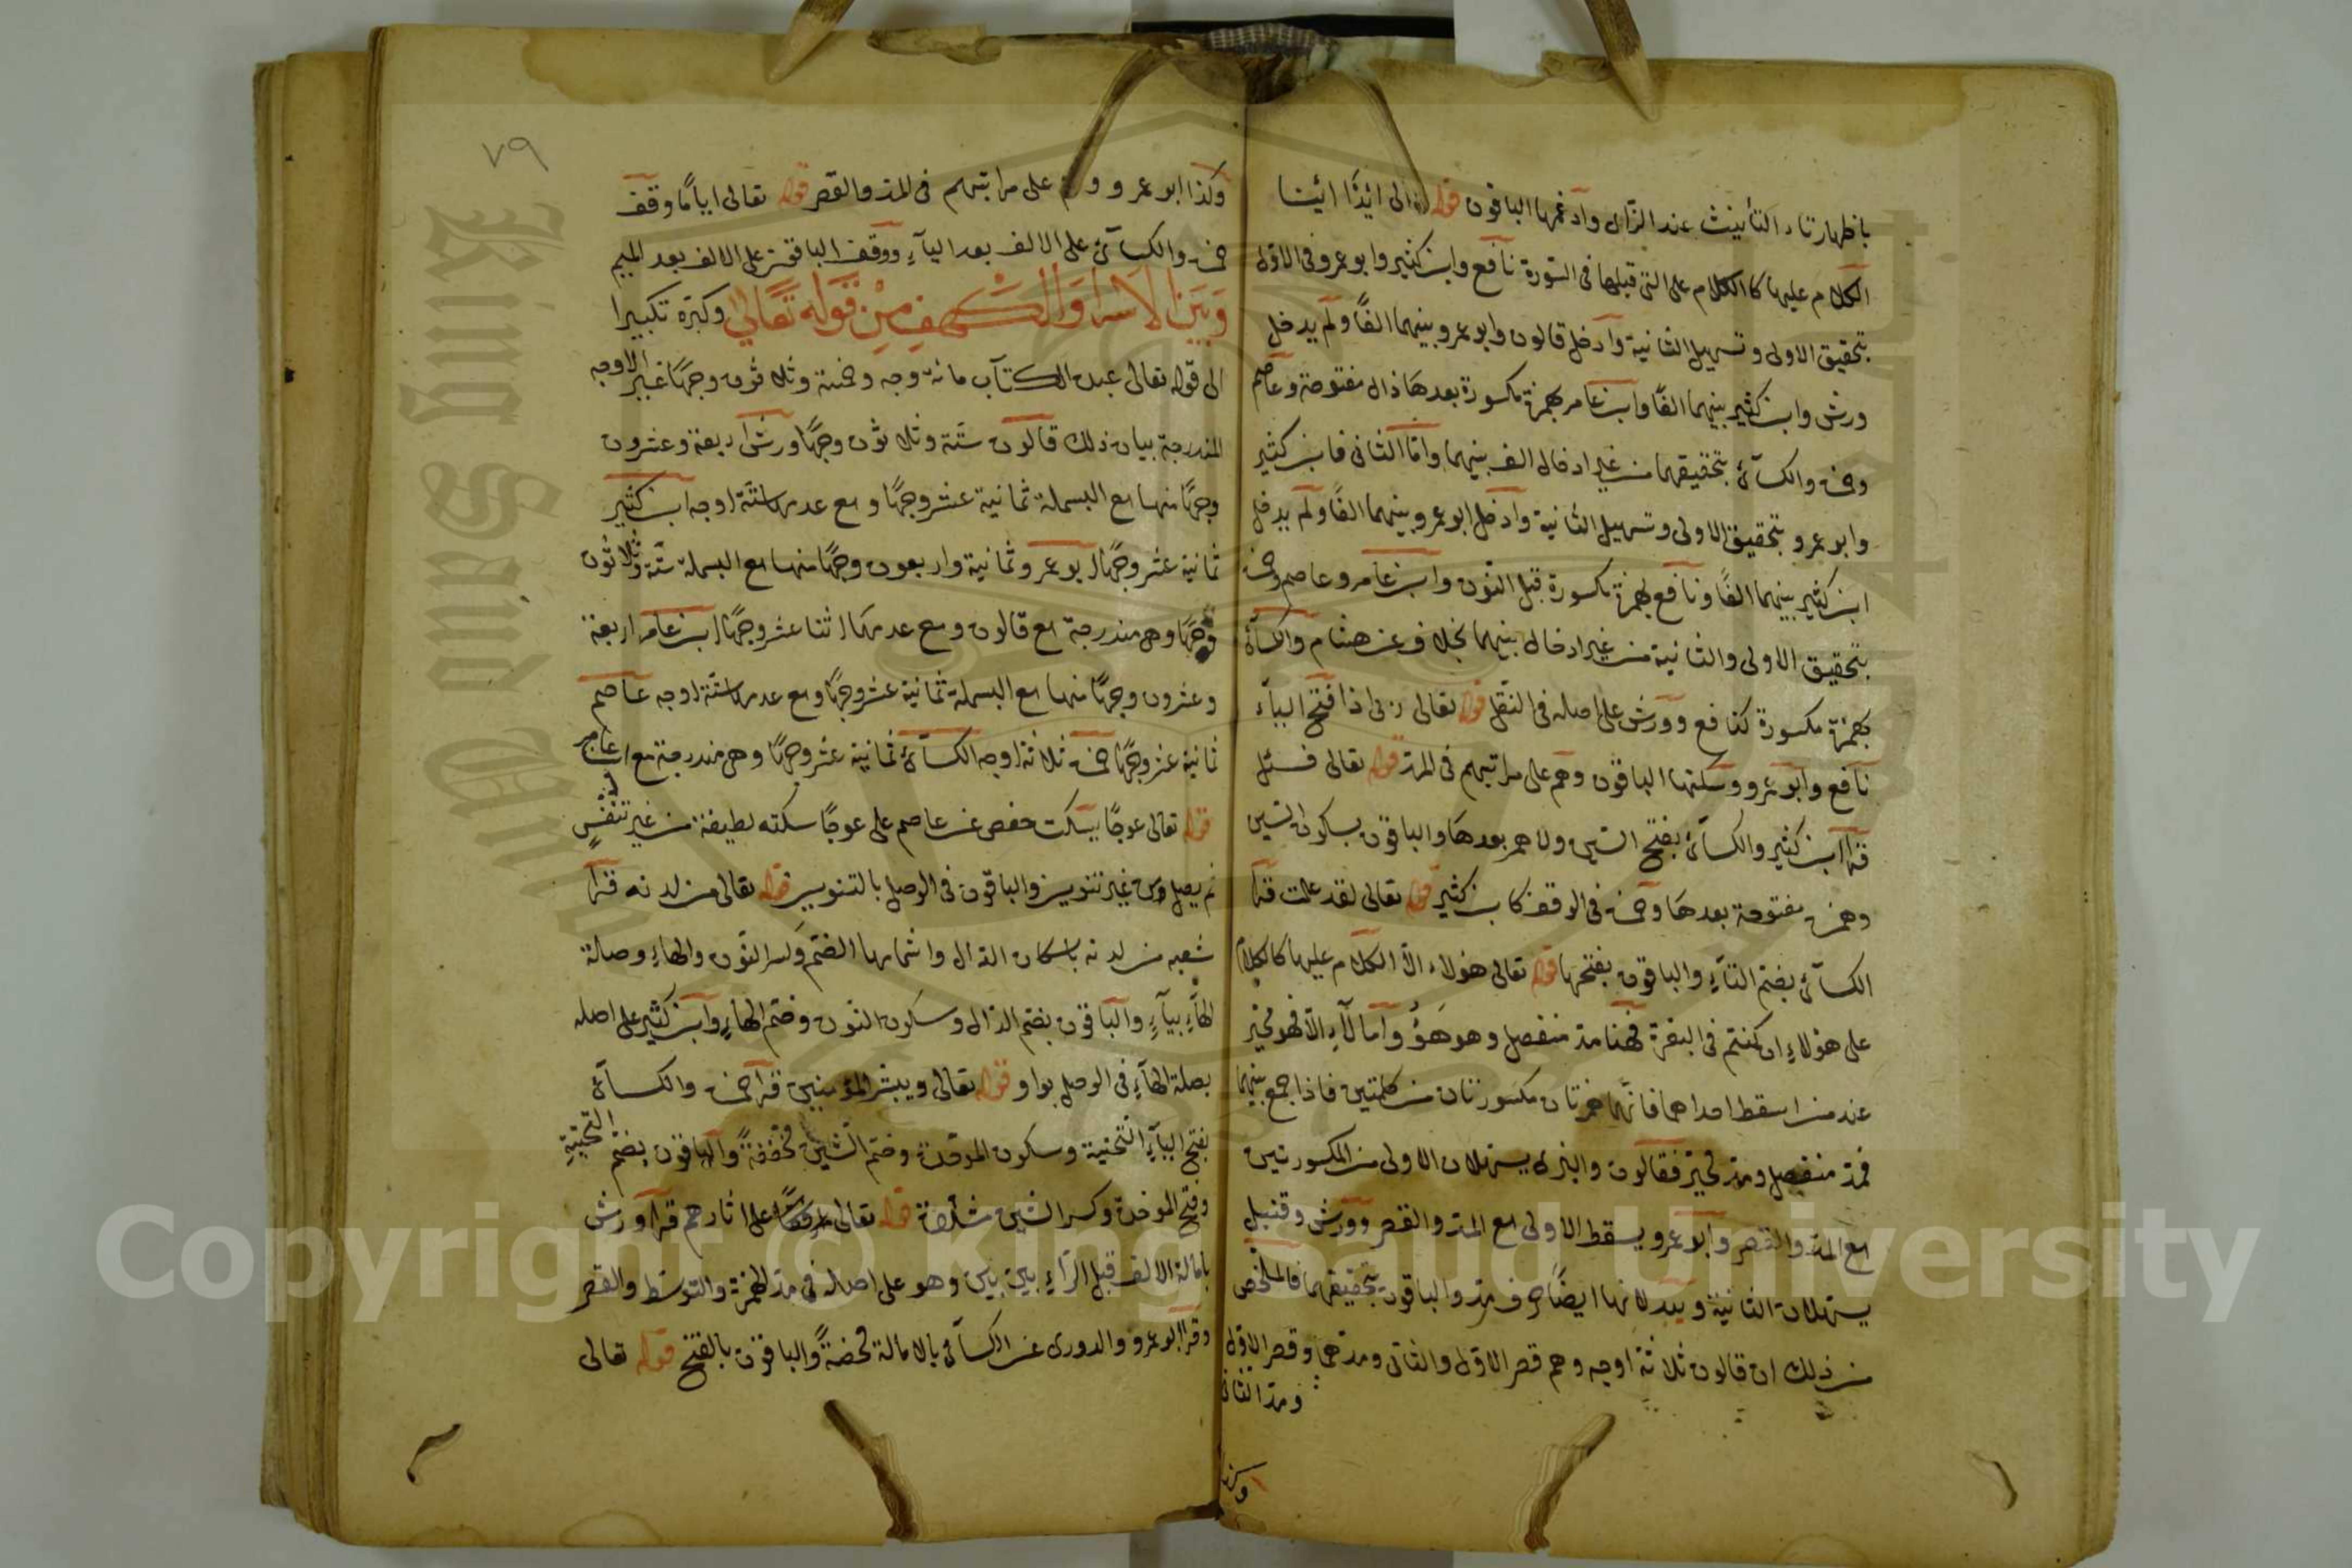 باظهار تاء التأنيث عند الزاى وادغمها الباقون قوله تعالى ائذا ائينا
الكلام عليها كالكلام على التى قبلها فى السورة نافع وابن كثير وابو عمرو فى الاول
بتحقيق الاولى وتسهيل الثانية وادخل قالون وابو عمرو بينهما الفًا ولم يدخل
ورش وابن كثير بينهما الفًا وابن عامر بهمزة مكسورة بعدها ذال مفتوحة وعاصم
وحمزة والكسآئى بتحقيقهما من غير ادخال الف بينهما وامّا الثانى فابن كثير
وابو عمرو بتحقيق الاولى وتسهيل الثانية وادخل ابو عمرو بينهما الفًا ولم يدخل
ابن كثير بينهما الفًا ونافع بهمزة مكسورة قبل النّون وابن عامر وعاصم وحمزة
بتحقيق الاولى والثانية من غير ادخال بينهما بخلاف عن هشام والكسآئى
بهمزة مكسورة كنافع وورش على اصله فى النّقل قوله تعالى ربى اذا فتح اليآء
نافع وابو عمرو وسكنها الباقون وهم على مراتبهم فى المد قوله تعالى فسئل
قرأ ابن كثير والكسآئى بفتح السّين ولا همز بعدها والباقون بسكون السّين
وهمزة مفتوحة بعدها وحمزة فى الوقف كابن كثير قوله تعالى لقد علمت قرأ
الكسآئى بضم التآء والباقون بفتحها قوله تعالى هؤلاء الّا الكلام عليها كالكلام
على هؤلاءِ ان كنتم فى البقرة فهنا مدّ منفصل وهو هَؤُ وامّا لآءِ الّا فهو مخيّر
عند من اسقط احداهما فانّهما همزتان مكسورتان من كلمتين فاذا جمع بينهما
فمدّ منفصل ومدّ مخيّر فقالون والبزى يسهلان الاولى من المكسورتين
مع المدّ والقصر وابو عمرو يسقط الاولى مع المدّ والقصر وورش وقنبل
يسهلان الثانية ويبدلانها ايضًا حرف مدّ والباقون بتحقيقهما فالملخّص
من ذلك ان قالون ثلاثة اوجه وهم قصر الاوّل والثانى ومدّهما وقصر الاوّل
ومدّ الثانى
وكذا
٧٩
وكذا ابو عمرو وهم على مراتبهم فى المدّ والقصر قوله تعالى ايّامًا وقف
حمزة والكسآئى على الالف بعد اليآءِ ووقف الباقون على الالف بعد الميم
وَبَيْنَ الاسرا وَالْكَهفِ مِنْ قَوله تَعَالى وكبّره تكبيرا
الى قوله تعالى عبده الكتاب مائة وجه وخمسة وثلاثون وجهًا غير الاوجه
المندرجة بيان ذلك قالون ستّة وثلاثون وجهًا ورش اربعة وعشرون
وجهًا منها مع البسملة ثمانية عشر وجهًا ومع عدمها ستّة اوجه ابن كثير
ثمانية عشر وجهًا ابو عمرو ثمانية واربعون وجهًا منها مع البسملة ستّة وثلاثون
وجهًا وهى مندرجة مع قالون ومع عدمها اثنا عشر وجهًا ابن عامر اربعة
وعشرون وجهًا منها مع البسملة ثمانية عشر وجهًا ومع عدمها ستّة اوجه عاصم
ثمانية عشر وجهًا حمزة ثلاثة اوجه الكسآئى ثمانية عشر وجهًا وهى مندرجة مع ابن عامر
قوله تعالى عوجًا يسكت حفص عن عاصم على عوجًا سكته لطيفة من غير تنفّسٍ
ثم يصل من غير تنوين والباقون فى الوصل بالتنوين قوله تعالى من لدنه قرأ
شعبه من لدنه باسكان الدّال واشمامها الضّم وكسر النّون والهاءِ وصلة
الهآءِ بيآءٍ والباقون بضم الدّال وسكون النون وضم الهاءِ وابن كثير على اصله
بصلة الهآءِ فى الوصل بواو قوله تعالى ويبشّر المؤمنين قرأ حمزة والكسآئى
بفتح اليآءِ التّحتية وسكون الموحّدة وضم الشّين مخففةً والباقون بضم التّحتيةِ
وفتح الموحّدة وكسر الشين مشدّدة قوله تعالى على اثارهم قرأ ورش
بامالة الالف قبل الرّآءِ بين بين وهو على اصله فى مدّ الهمزة والتوسّط والقصر
وقرأ ابو عمرو والدورى عن الكسآئى بالامالة محضةً والباقون بالفتح قوله تعالى
King Saud University
Copyright © King Saud University